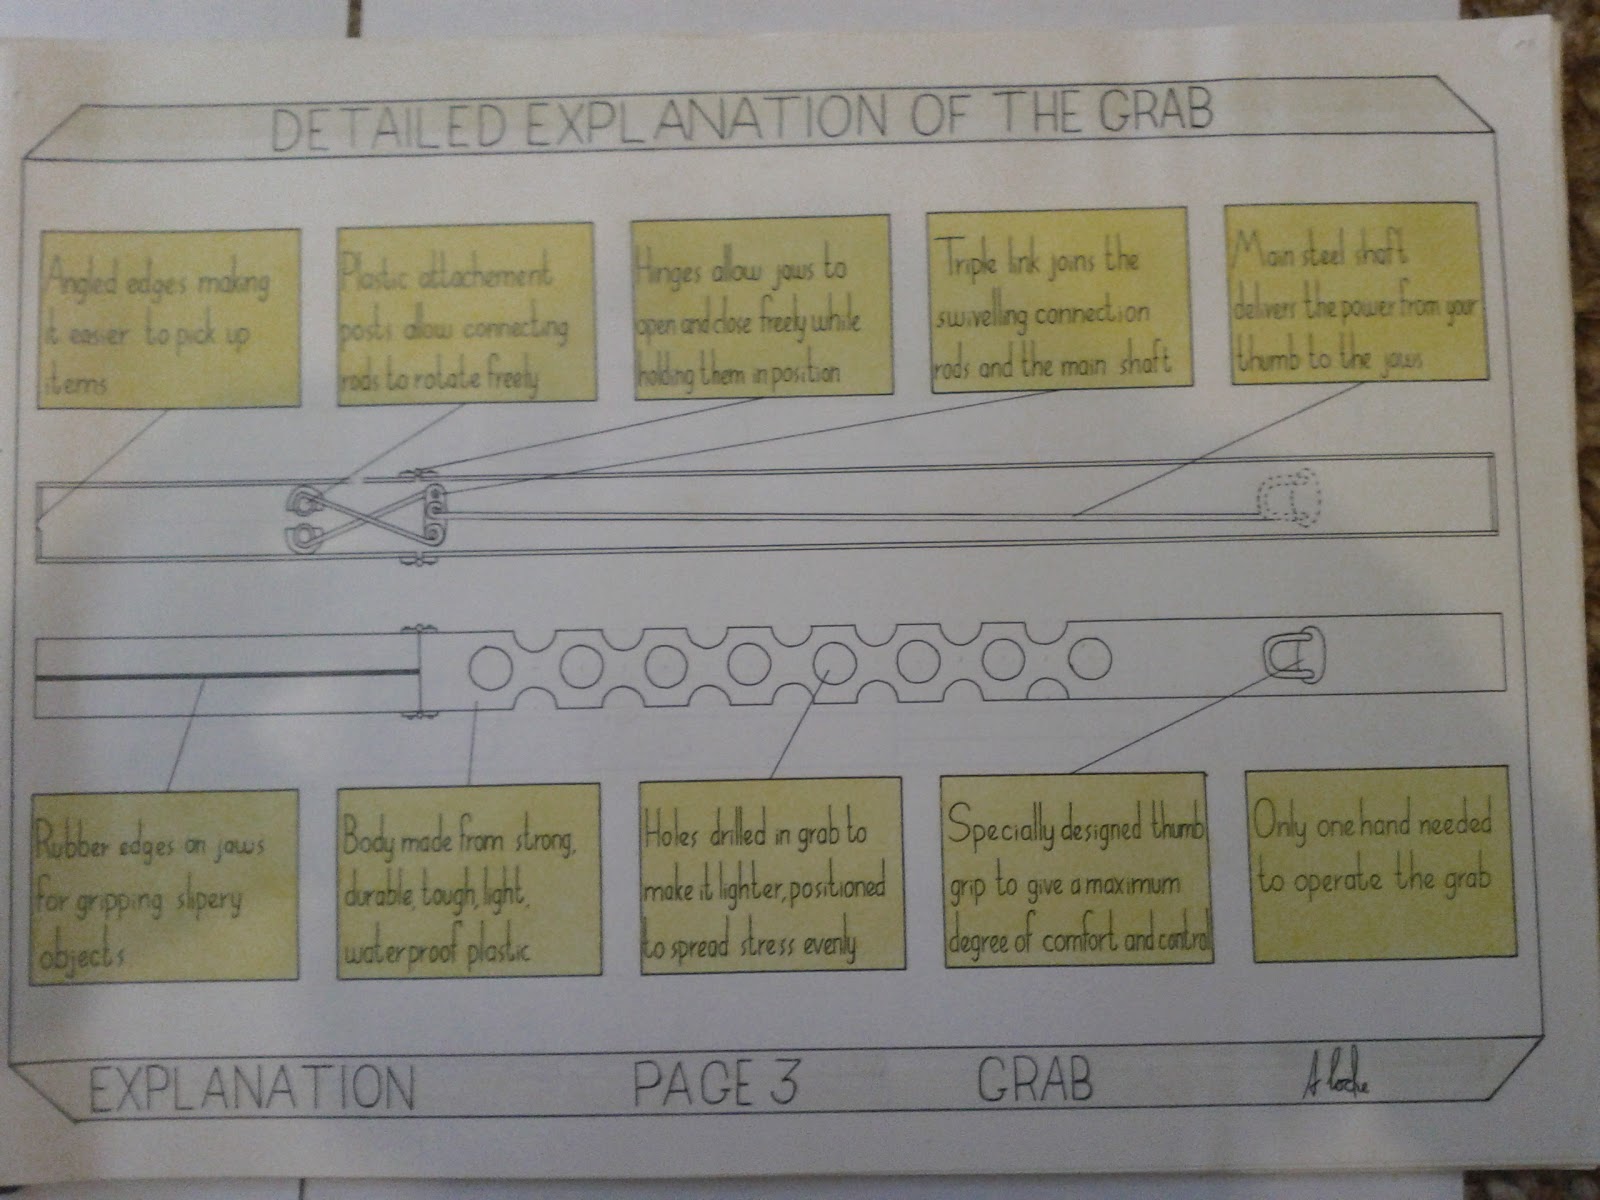 DETAILED EXPLANATION OF THE GRAB
Angled edges making
it easier to pick up
items
Plastic attachement
posts allow connecting
rods to rotate freely
Hinges allow jaws to
open and close freely while
holding them in position
Triple link joins the
swivelling connection
rods and the main shaft
Main steel shaft
delivers the power from your
thumb to the jaws
Rubber edges on jaws
for gripping slipery
objects
Body made from strong,
durable, tough, light,
waterproof plastic
Holes drilled in grab to
make it lighter, positioned
to spread stress evenly
Specially designed thumb
grip to give a maximum
degree of comfort and control
Only one hand needed
to operate the grab
EXPLANATION
PAGE 3
GRAB